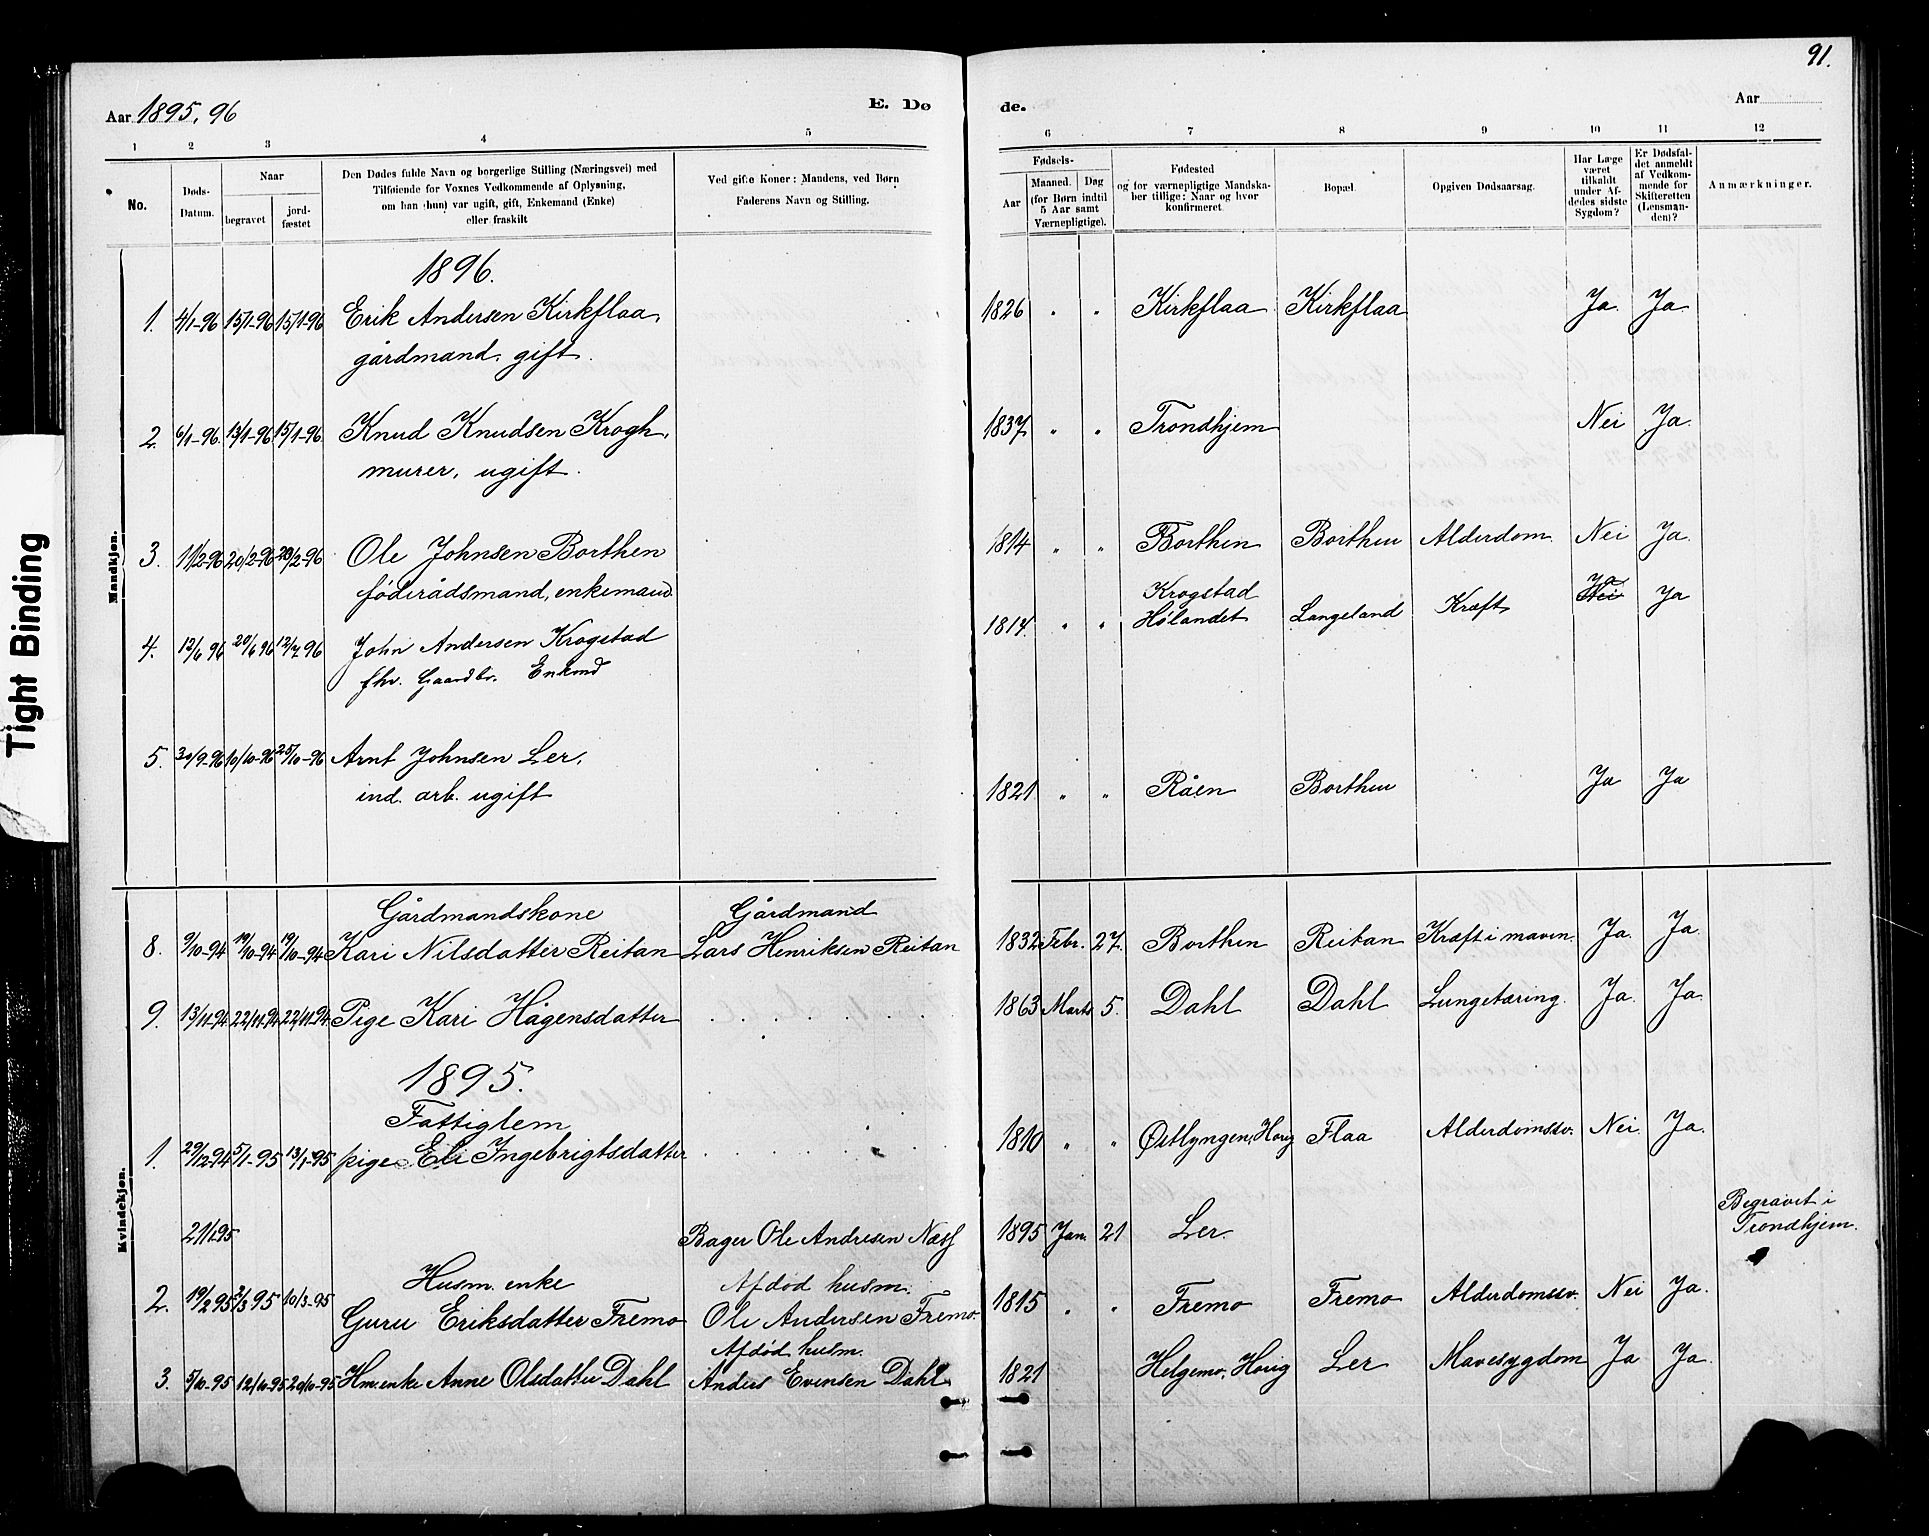 91.
Aar 1895, 96 E. Dø de. Aar
1 2 3 4 5 6 7 8 9 10 11 12
No. Døds-Datum. Naar begravet jordfæstet Den Dødes fulde Navn og borgerlige Stilling (Næringsvei) med Tilføiende for Voxnes Vedkommende af Oplysning, om han (hun) var ugift, gift, Enkemand (Enke) eller fraskilt Ved gifte Koner: Mandens, ved Børn Faderens Navn og Stilling. Fødsels- Aar Maaned. Døg (for Børn indtil 5 Aar samt Værnepligtige). Fødested og for værnepligtige Mandskaber tillige: Naar og hvor konfirmeret. Bopæl. Opgiven Dødsaarsag. Har Læge været tilkaldt under Afdødes sidste Sygdom? Er Dødsfaldet anmeldt af Vedkommende for Skifteretten (Lensmanden)? Anmærkninger.
Mandkjøn.
1896.
1. 4/1-96 15/1-96 15/1-96 Erik Andersen Kirkflaa, 1826 " " Kirkflaa Kirkflaa Ja Ja
gårdmand, gift.
2. 6/1-96 13/1-96 15/1-96 Knud Knudsen Krogh, 1837 " " Trondhjem Nei Ja.
murer, ugift.
3. 11/2-96 20/2-96 20/2-96 Ole Johnsen Borthen 1814 " " Borthen Borthen Alderdom. Nei Ja.
föderådsmand, enkemand
4. 12/6 96 20/6 96 12/7 96 John Andersen Krogstad 1814. " " Krogstad Hølandet Langeland Kræft Ja Nei Ja
fhv. Gaardbr. Enkmd
5. 30/9-96 10/10-96 25/10-96 Arnt Johnsen Ler, 1821 " " Råen Borthen Ja Ja
ind. arb. ugift
Kvindekjøn.
Gårdmandskone Gårdmand
8. 9/10-94 19/10-94 19/10-94 Kari Nilsdatter Reitan Lars Henriksen Reitan 1832 Febr. 27. Borthen Reitan Kræft i maven. Ja. Ja.
9. 13/11-94 22/11-94 22/11-94 Pige Kari Hågensdatter 1863 Marts 5. Dahl Dahl Lungetæring. Ja. Ja.
1895.
Fattiglem
1. 29/12-94 5/1-95 13/1-95 pige Eli Ingebrigtsdatter 1810 " " Østlyngen, Horig Flaa Alderdomssv. Nei Ja.
21/1 95 Bager Ole Andresen Næss 1895 Jan. 21 Ler. Begravet i Trondhjem.
Husm. enke Afdød husm.
2. 19/2 95 2/3 95 10/3-95 Guru Eriksdatter Fremo Ole Andersen Fremo. 1815 " " Fremo Fremo Alderdomssv. Nei Ja.
Afdød husm.
3. 5/10-95 12/10-95 20/10-95 Hm.enke Anne Olsdatter Dahl Anders Evensen Dahl 1821 Helgemo, Horig Ler Mavesygdom Ja Ja.
Tight Binding